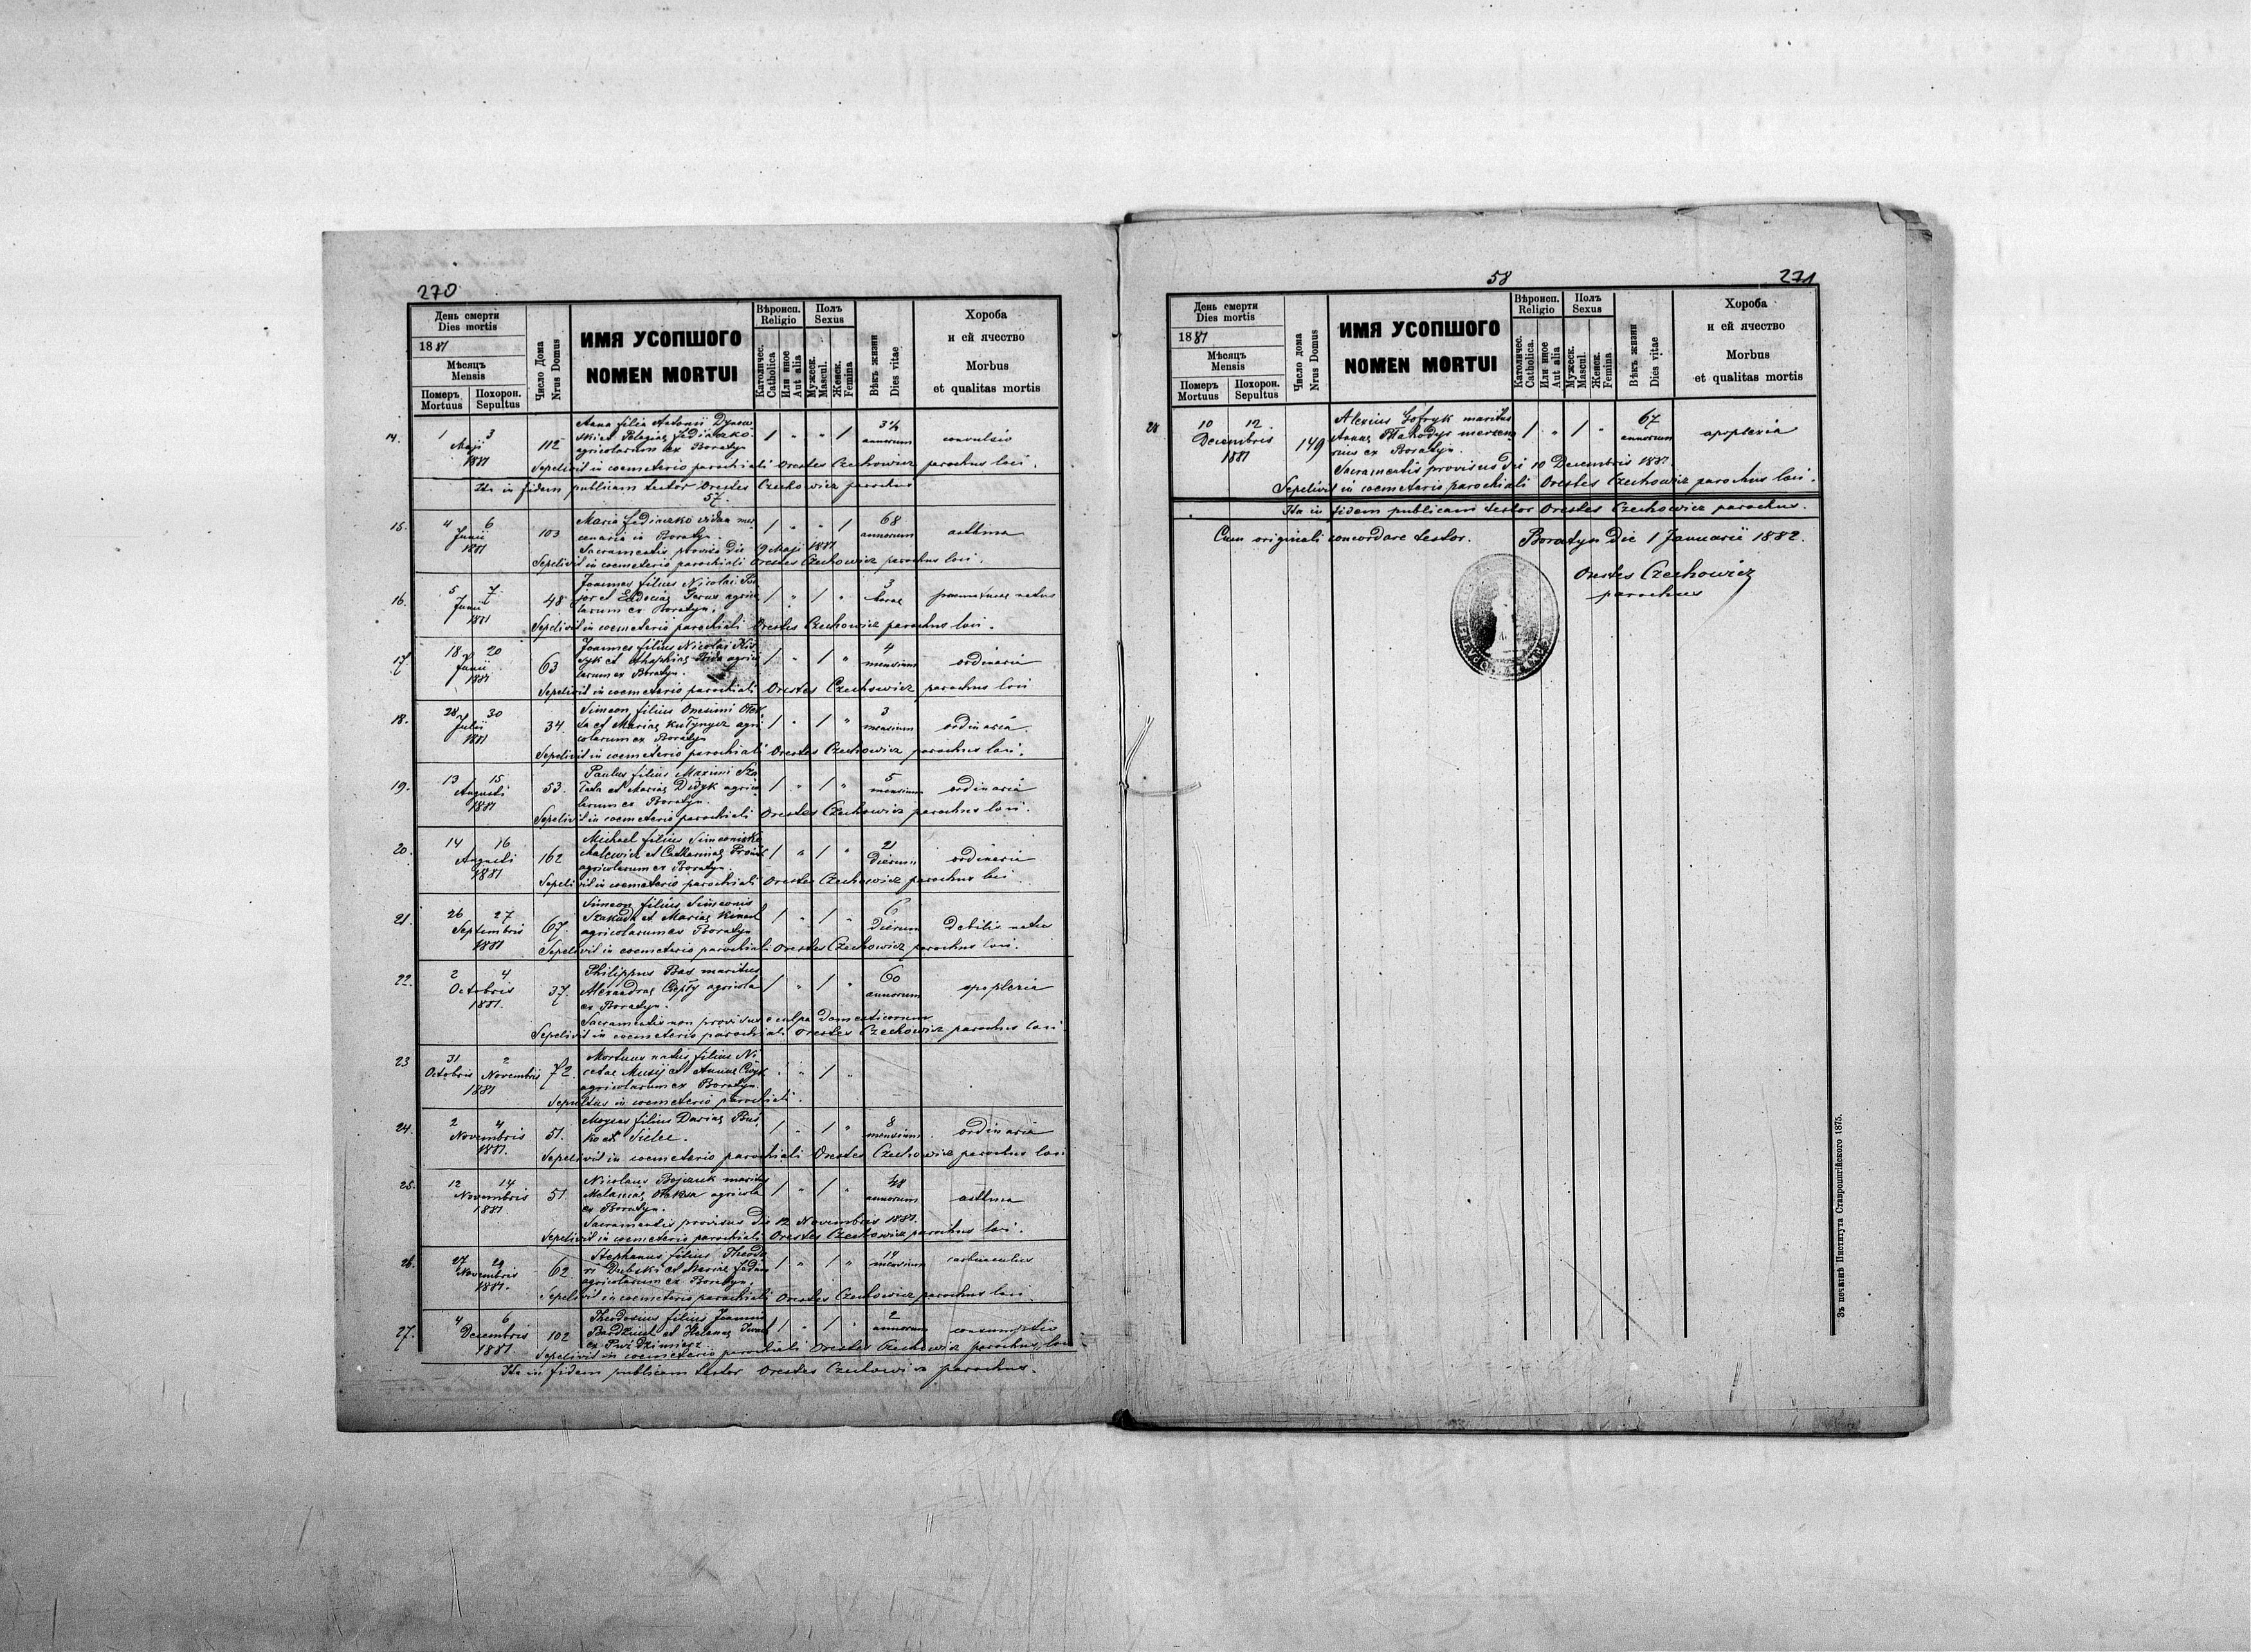 270
День смерти
Dies mortis
1881
Мѣсяцъ
Mensis
Померъ Похорон.
Mortuus Sepultus
Число Дома
Nrus Domus
ИМЯ УСОПШОГО
NOMEN MORTUI
Вѣроисп.
Religio
Католичес.
Catholica
Или иное
Aut alia
Полъ
Sexus
Мужеск.
Mascul.
Женск.
Femina
Вѣкъ жизни
Dies vitae
Хороба
и ей ячество
Morbus
et qualitas mortis
14. 1 3 Maji 1881 112
Anna filia Antonii
ski et Pelagiae Fedinczko
agricolarum ex Boratyn
1 " " 1 3½ annorum convulsio
Sepelivit in coemeterio parochiali Orestes Czechowicz parochus loci.
Ita in fidem publicam testor Orestes Czechowicz parochus
57.
15. 4 6 Junii 1881 103
Maria Fedinczko vidua mer
cenaria in Boratyn.
1 " " 1 68 annorum asthma
Sacramentis provisa die 19 Maji 1881
Sepelivit in coemeterio parochiali Orestes Czechowicz parochus loci.
16. 5 7 Junii 1881 48
Joannes filius Nicolai
et Eudociae agrico
larum ex Boratyn.
1 " 1 " 3 horae praemature natus
Sepelivit in coemeterio parochiali Orestes Czechowicz parochus loci.
17. 18 20 Junii 1881 63
Joannes filius Nicolai
et Agaphiae agrico
larum ex Boratyn.
1 " 1 " 4 mensium ordinaria
Sepelivit in coemeterio parochiali Orestes Czechowicz parochus loci
18. 28 30 Julii 1881 34.
Simeon filius Onesimi
et Mariae Kułynycz agri
colarum ex Boratyn
1 " 1 " 3 mensium ordinaria
Sepelivit in coemeterio parochiali Orestes Czechowicz parochus loci.
19. 13 15 Augusti 1881 53.
Paulus filius Maximi Sza
et Mariae Didyk agrico
larum ex Boratyn.
1 " 1 " 5 mensium ordinaria
Sepelivit in coemeterio parochiali Orestes Czechowicz parochus loci.
20. 14 16 Augusti 1881 162
Michael filius Simeonis
et Catharinae
agricolarum ex Boratyn.
1 " 1 " 21 dierum ordinaria
Sepelivit in coemeterio parochiali Orestes Czechowicz parochus loci
21. 26 27 Septembris 1881 67.
Simeon filius Simeonis
Szakada et Mariae
agricolarum ex Boratyn
1 " 1 " 6 dierum debilis natus
Sepelivit in coemeterio parochiali Orestes Czechowicz parochus loci.
22. 2 4 Octobris 1881. 37.
Philippus Bas maritus
Alexandrae Ciepły agricola
ex Boratyn.
1 " 1 " 60 annorum apoplexia
Sacramentis non provisus e culpa domesticorum
Sepelivit in coemeterio parochiali Orestes Czechowicz parochus loci
23 31 Octobris 2 Novembris 1881 72.
Mortuus natus filius Ni
cetae Musij et Annae
agricolarum ex Boratyn.
" " 1 "
Sepultus in coemeterio parochiali.
24. 2 4 Novembris 1881. 51.
Moyses filius Dariae
ko ex Sielec.
1 " 1 " 8 mensium ordinaria
Sepelivit in coemeterio parochiali Orestes Czechowicz parochus loci
25. 12 14 Novembris 1881. 51.
Nicolaus Bojczuk maritus
Melaniae agricola
ex Boratyn.
1 " 1 " 48 annorum asthma
Sacramentis provisus die 12 Novembris 1881.
Sepelivit in coemeterio parochiali Orestes Czechowicz parochus loci.
26. 27 29 Novembris 1881. 62.
Stephanus filius Theodo
ri Dubski et Mariae
agricolarum ex Boratyn.
1 " 1 " 14 mensium carbunculus
Sepelivit in coemeterio parochiali Orestes Czechowicz parochus loci.
27. 4 6 Decembris 1881. 102
Theodosius filius Joannis
et Helenae
ex
1 " 1 " 2 annorum consumptio
Sepelivit in coemeterio parochiali Orestes Czechowicz parochus loci
Ita in fidem publicam testor Orestes Czechowicz parochus.
58
271
День смерти
Dies mortis
1881
Мѣсяцъ
Mensis
Померъ Похорон.
Mortuus Sepultus
Число дома
Nrus Domus
ИМЯ УСОПШОГО
NOMEN MORTUI
Вѣроисп.
Religio
Католичес.
Catholica.
Или иное
Aut alia
Полъ
Sexus
Мужеск.
Mascul.
Женск.
Femina
Вѣкъ жизни
Dies vitae
Хороба
и ей ячество
Morbus
et qualitas mortis
28 10 12. Decembris 1881 149
Alexius Gofryk maritus
Annae mercena
rius ex Boratyn.
1 " 1 " 67 annorum apoplexia
Sacramentis provisus die 10 Decembris 1881.
Sepelivit in coemeterio parochiali Orestes Czechowicz parochus loci.
Ita in fidem publicam testor Orestes Czechowicz parochus.
Cum originali concordare testor. Boratyn die 1 Januarii 1882.
Orestes Czechowicz
parochus
Зъ печатнѣ Института Ставропигійского 1875.